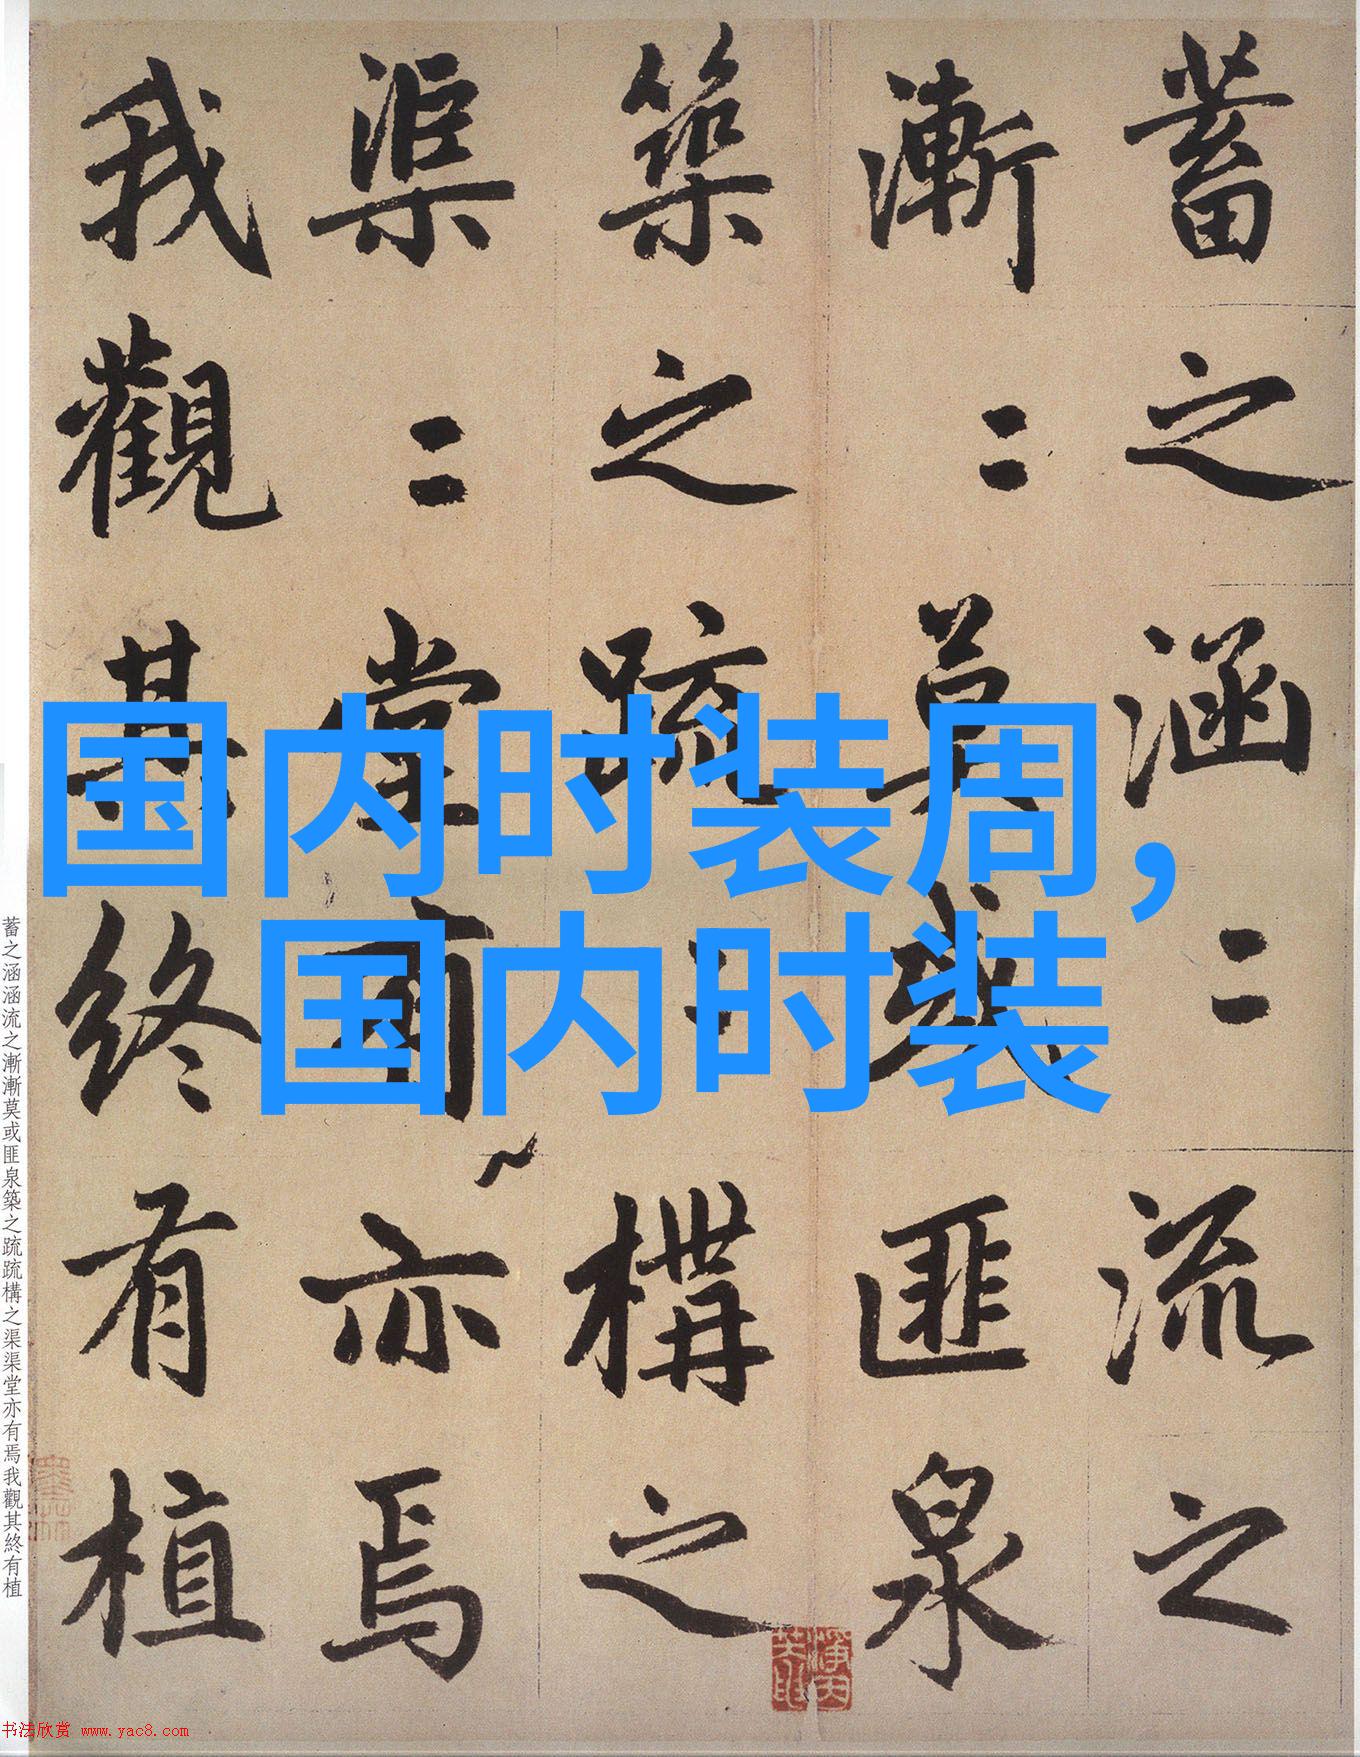 蓄之涵〻流之
漸〻莫或匪泉
築之疏〻構之
渠〻堂有亦焉
我觀其終有植
国内时装周，
国内时装
蓄之涵涵流之漸漸莫或匪泉築之疏疏構之渠渠堂亦有焉我觀其終有植
书法欣赏 www.yac8.com